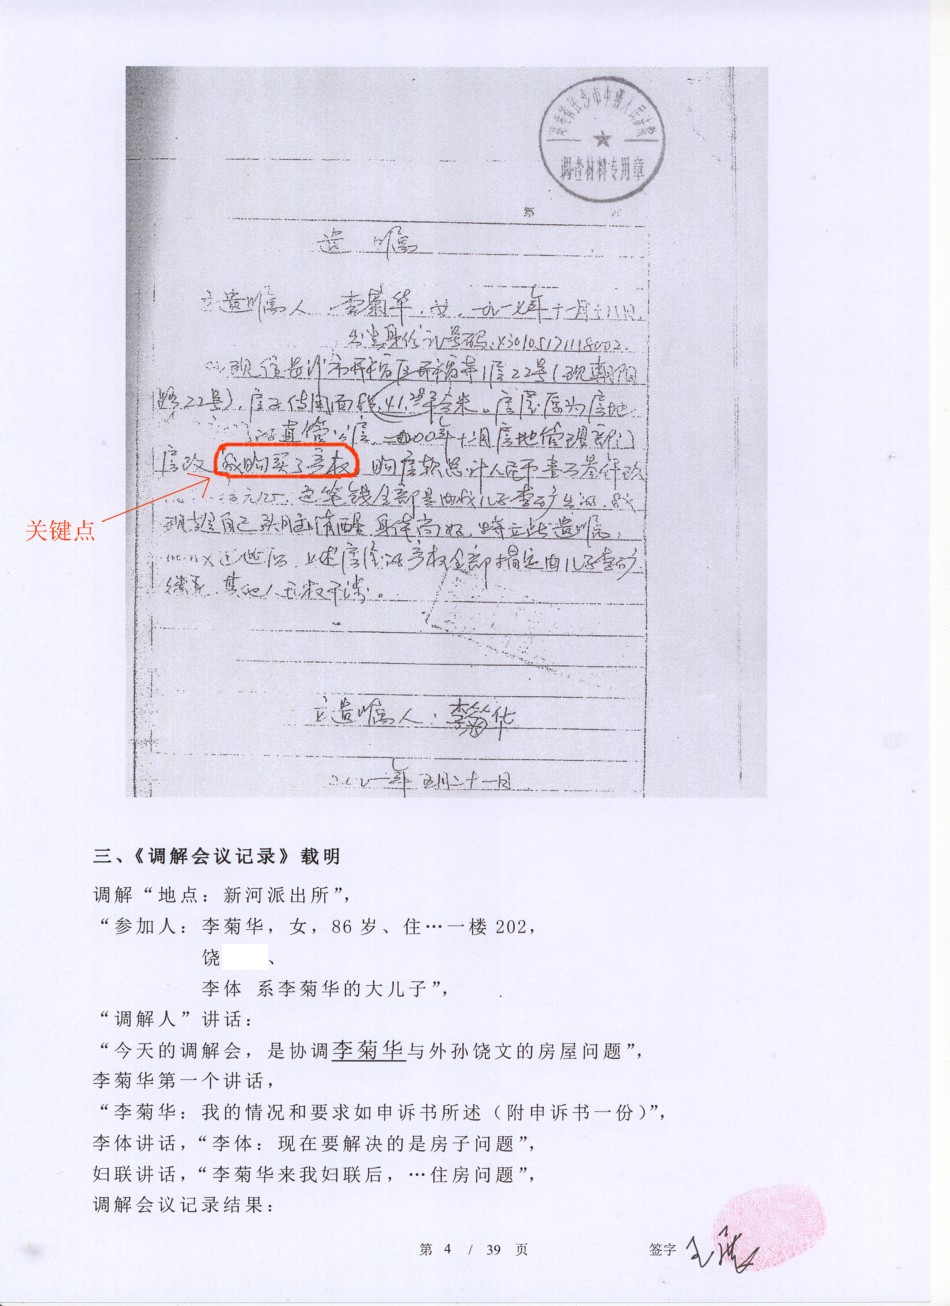 湖南省长沙市中级人民法院
调查材料专用章
第 页
遗嘱
立遗嘱人 李菊华,女,一九一七年十一月十八日,
公民身份证号码:430105171118002.
现住长沙市开福区开福寺1信22号(现朝阳
路22号),房子使用面积,41.平方米。房屋原为房地
的直管公房,二000年十二月房地管理部门
房改 我购买了产权 购房款总计人民币壹万叁仟玖
元.这笔钱全部是由我儿子李矿生的.我
现趁自己头脑清醒,身体尚好,特立此遗嘱,
过世后,上述房屋的产权全部指定由儿子李矿
继承,其他人无权干涉。
关键点
立遗嘱人:李菊华
二00一年五月二十一日
三、《调解会议记录》载明
调解“地点:新河派出所”,
“参加人:李菊华,女,86 岁、住…一楼 202,
饶 、
李体 系李菊华的大儿子”,
“调解人”讲话:
“今天的调解会,是协调李菊华与外孙饶文的房屋问题”,
李菊华第一个讲话,
“李菊华:我的情况和要求如申诉书所述(附申诉书一份)”,
李体讲话,“李体:现在要解决的是房子问题”,
妇联讲话,“李菊华来我妇联后,…住房问题”,
调解会议记录结果:
第 4 / 39 页
签字